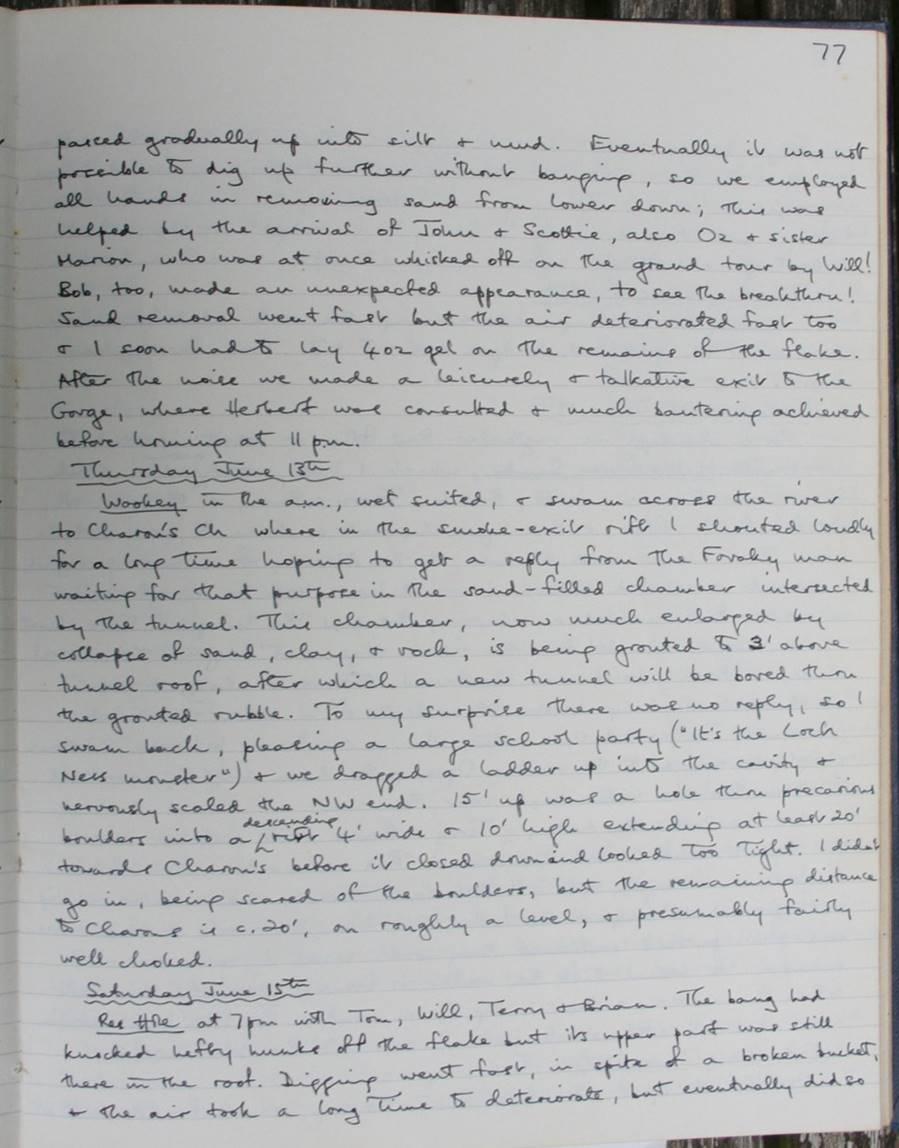 77
passed gradually up into silt & mud. Eventually it was not
possible to dig up further without banging, so we employed
all hands in removing sand from lower down; this was
helped by the arrival of John & Scottie, also Oz & sister
Marion, who was at once whisked off on the grand tour by Will!
Bob, too, made an unexpected appearance, to see the breakthru!
Sand removal went fast but the air deteriorated fast too
& I soon had to lay 4oz gel on the remains of the flake.
After the noise we made a leisurely & talkative exit to the
Gorge, where Herbert was consulted & much bantering achieved
before homing at 11 pm.
Thursday June 13th
Wookey in the a.m., wet suited, & swam across the river
to Charon's Ch where in the smoke-exit rift I shouted loudly
for a long time hoping to get a reply from the Foraky man
waiting for that purpose in the sand-filled chamber intersected
by the tunnel. This chamber, now much enlarged by
collapse of sand, clay, & rock, is being grouted to 3' above
tunnel roof, after which a new tunnel will be bored thru
the grouted rubble. To my surprise there was no reply, so I
swam back, pleasing a large school party ("It's the Loch
Ness monster") & we dragged a ladder up into the cavity &
nervously scaled the NW end. 15' up was a hole thru precarious
boulders into a descending rift 4' wide & 10' high extending at least 20'
towards Charon's before it closed down and looked too tight. I didn't
go in, being scared of the boulders, but the remaining distance
to Charons is c. 20', on roughly a level, & presumably fairly
well choked.
Saturday June 15th
Res Hole at 7pm with Tom, Will, Terry & Brian. The bang had
knocked hefty hunks off the flake but its upper part was still
there in the roof. Digging went fast, in spite of a broken bucket,
& the air took a long time to deteriorate, but eventually did so